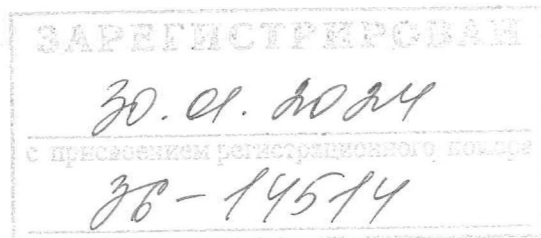 ЗАРЕГИСТРИРОВАН
30.01.2024
с присвоением регистрационного номера
36-14514